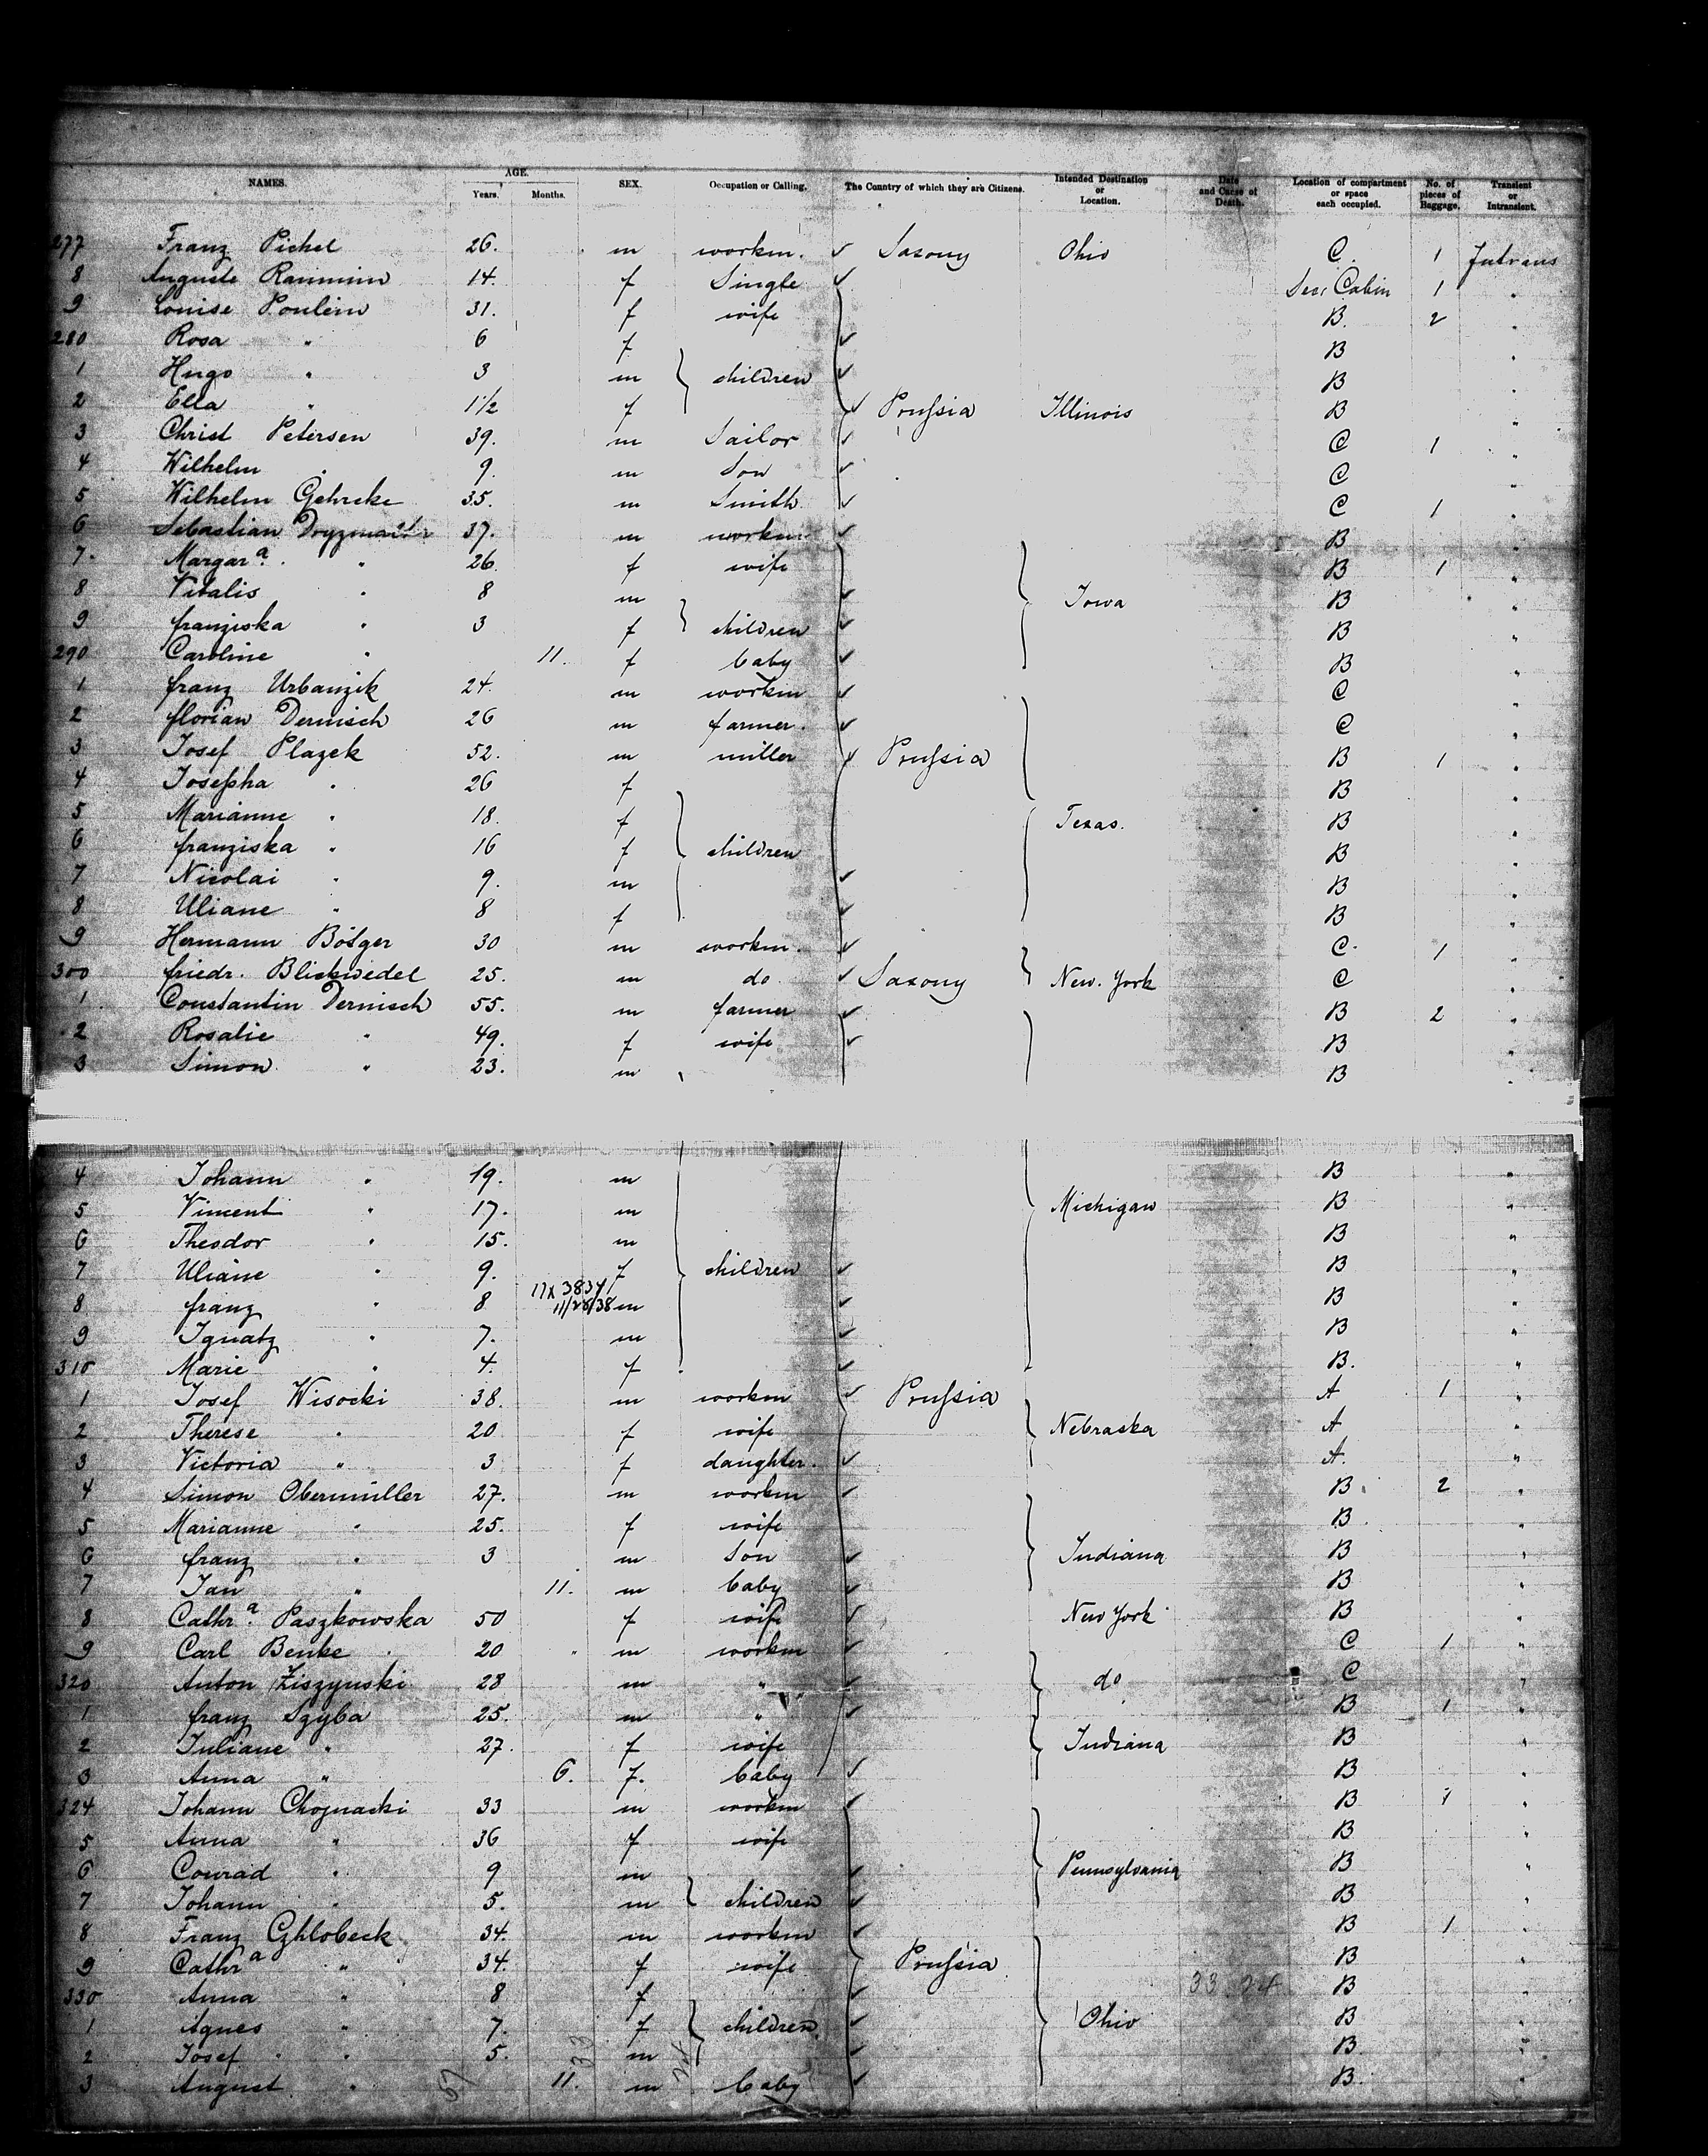 NAMES. AGE. Years. Months. SEX. Occupation or Calling. The Country of which they are Citizens. Intended Destination or Location. Date and Cause of Death. Location of compartment or space each occupied. No. of pieces of Baggage. Transient or Intransient.
277 Franz Pichel 26. m workm. Saxony Ohio C. 1 Intrans
8 Auguste Rammin 14. f Single Sec: Cabin 1 "
9 Louise Poulein 31. f wife B. 2 "
280 Rosa " 6 f B "
1 Hugo " 3 m children B "
2 Ella " 1 1/2 f Prussia Illinois B "
3 Christ Petersen 39. m Sailor C 1 "
4 Wilhelm " 9. m Son C "
5 Wilhelm Gehrcke 35. m Smith C 1 "
6 Sebastian 37. m workm B "
7. Margar<sup>a</sup>. " 26. f wife B 1 "
8 Vitalis " 8 m Iowa B "
9 franziska " 3 f children B "
290 Caroline " 11. f baby B "
1 franz Urbanzik 24. m workm C "
2 florian Dernisch 26 m farmer. C "
3 Josef Plazek 52. m miller Prussia B 1 "
4 Josepha " 26 f B "
5 Marianne " 18. f Texas. B "
6 franziska " 16 f children B "
7 Nicolai " 9. m B "
8 Uliane " 8 f B "
9 Hermann 30 m workm. C. 1 "
300 friedr. Blickwedel 25. m do Saxony New. York C "
1 Constantin Dernisch 55. m farmer B 2 "
2 Rosalie " 49. f wife B "
3 Simon " 23. m B "
4 Johann " 19. m B "
5 Vincent " 17. m Michigan B "
6 Theodor " 15. m B "
7 Uliane " 9. f children B "
11/28/38
8 franz " 8 m B "
9 Ignatz " 7. m B "
310 Marie " 4. f B. "
1 Josef Wisocki 38. m workm Prussia A 1 "
2 Therese " 20 f wife Nebraska A "
3 Victoria " 3 f daughter. A. "
4 Simon Obermüller 27. m workm B. 2 "
5 Marianne " 25. f wife B. "
6 franz " 3 m Son Indiana B "
7 Jan " 11. m baby B "
8 Cathr<sup>a</sup>. Paszkowska 50 f wife New York B "
9 Carl Benke 20 m workm C 1 "
320 Anton Ziszynski 28 m " do C "
1 franz Szyba 25. m " B 1 "
2 Juliane " 27. f wife Indiana B "
3 Anna " 6. f. baby B "
324 Johann Chojnacki 33 m workm B 1 "
5 Anna " 36 f wife B "
6 Conrad " 9 m Pennsylvania B "
7 Johann " 5. m children B "
8 Franz Czhlobeck 34. m workm B 1 "
9 Cathr<sup>a</sup> " 34. f wife Prussia B "
330 Anna " 8 f B "
1 Agnes " 7. f children Ohio B "
2 Josef " 5. m B "
3 August " 11. m baby B. "